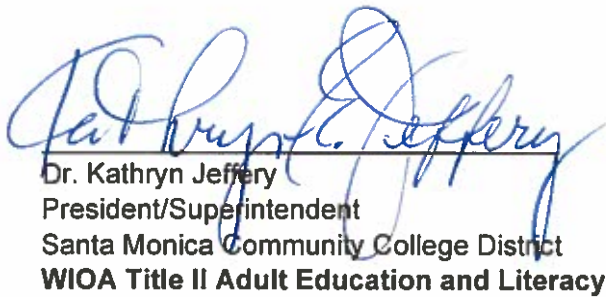 Kathryn E. Jeffery
Dr. Kathryn Jeffery
President/Superintendent
Santa Monica Community College District
WIOA Title II Adult Education and Literacy